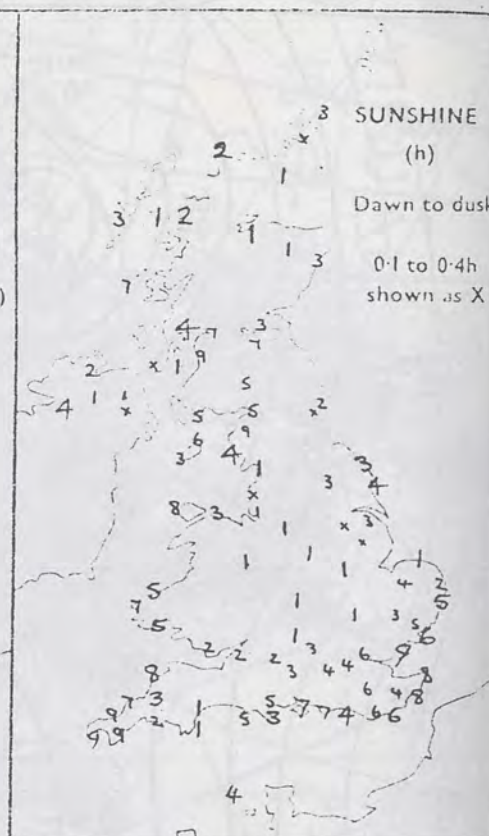 SUNSHINE
(h)
Dawn to dusk
0·1 to 0·4h
shown as X
)
3
x
2
1
3 1 2
1 1
3
7
4 7 3
7
9
x 1
2
5
1 1
4 x
5 5 x 2
6 9
3 4
1
3 3
4
x
8 3 1
x 3
x
1
1 1 1
1
4 2
5
5
7
1
1 3
5
5
6
1
2 2 2 3
6 9
8
3 4 4
8
6 4 8
7 3
9
1 5
7 7 4
9 9 2
1
5 3
6 6
4